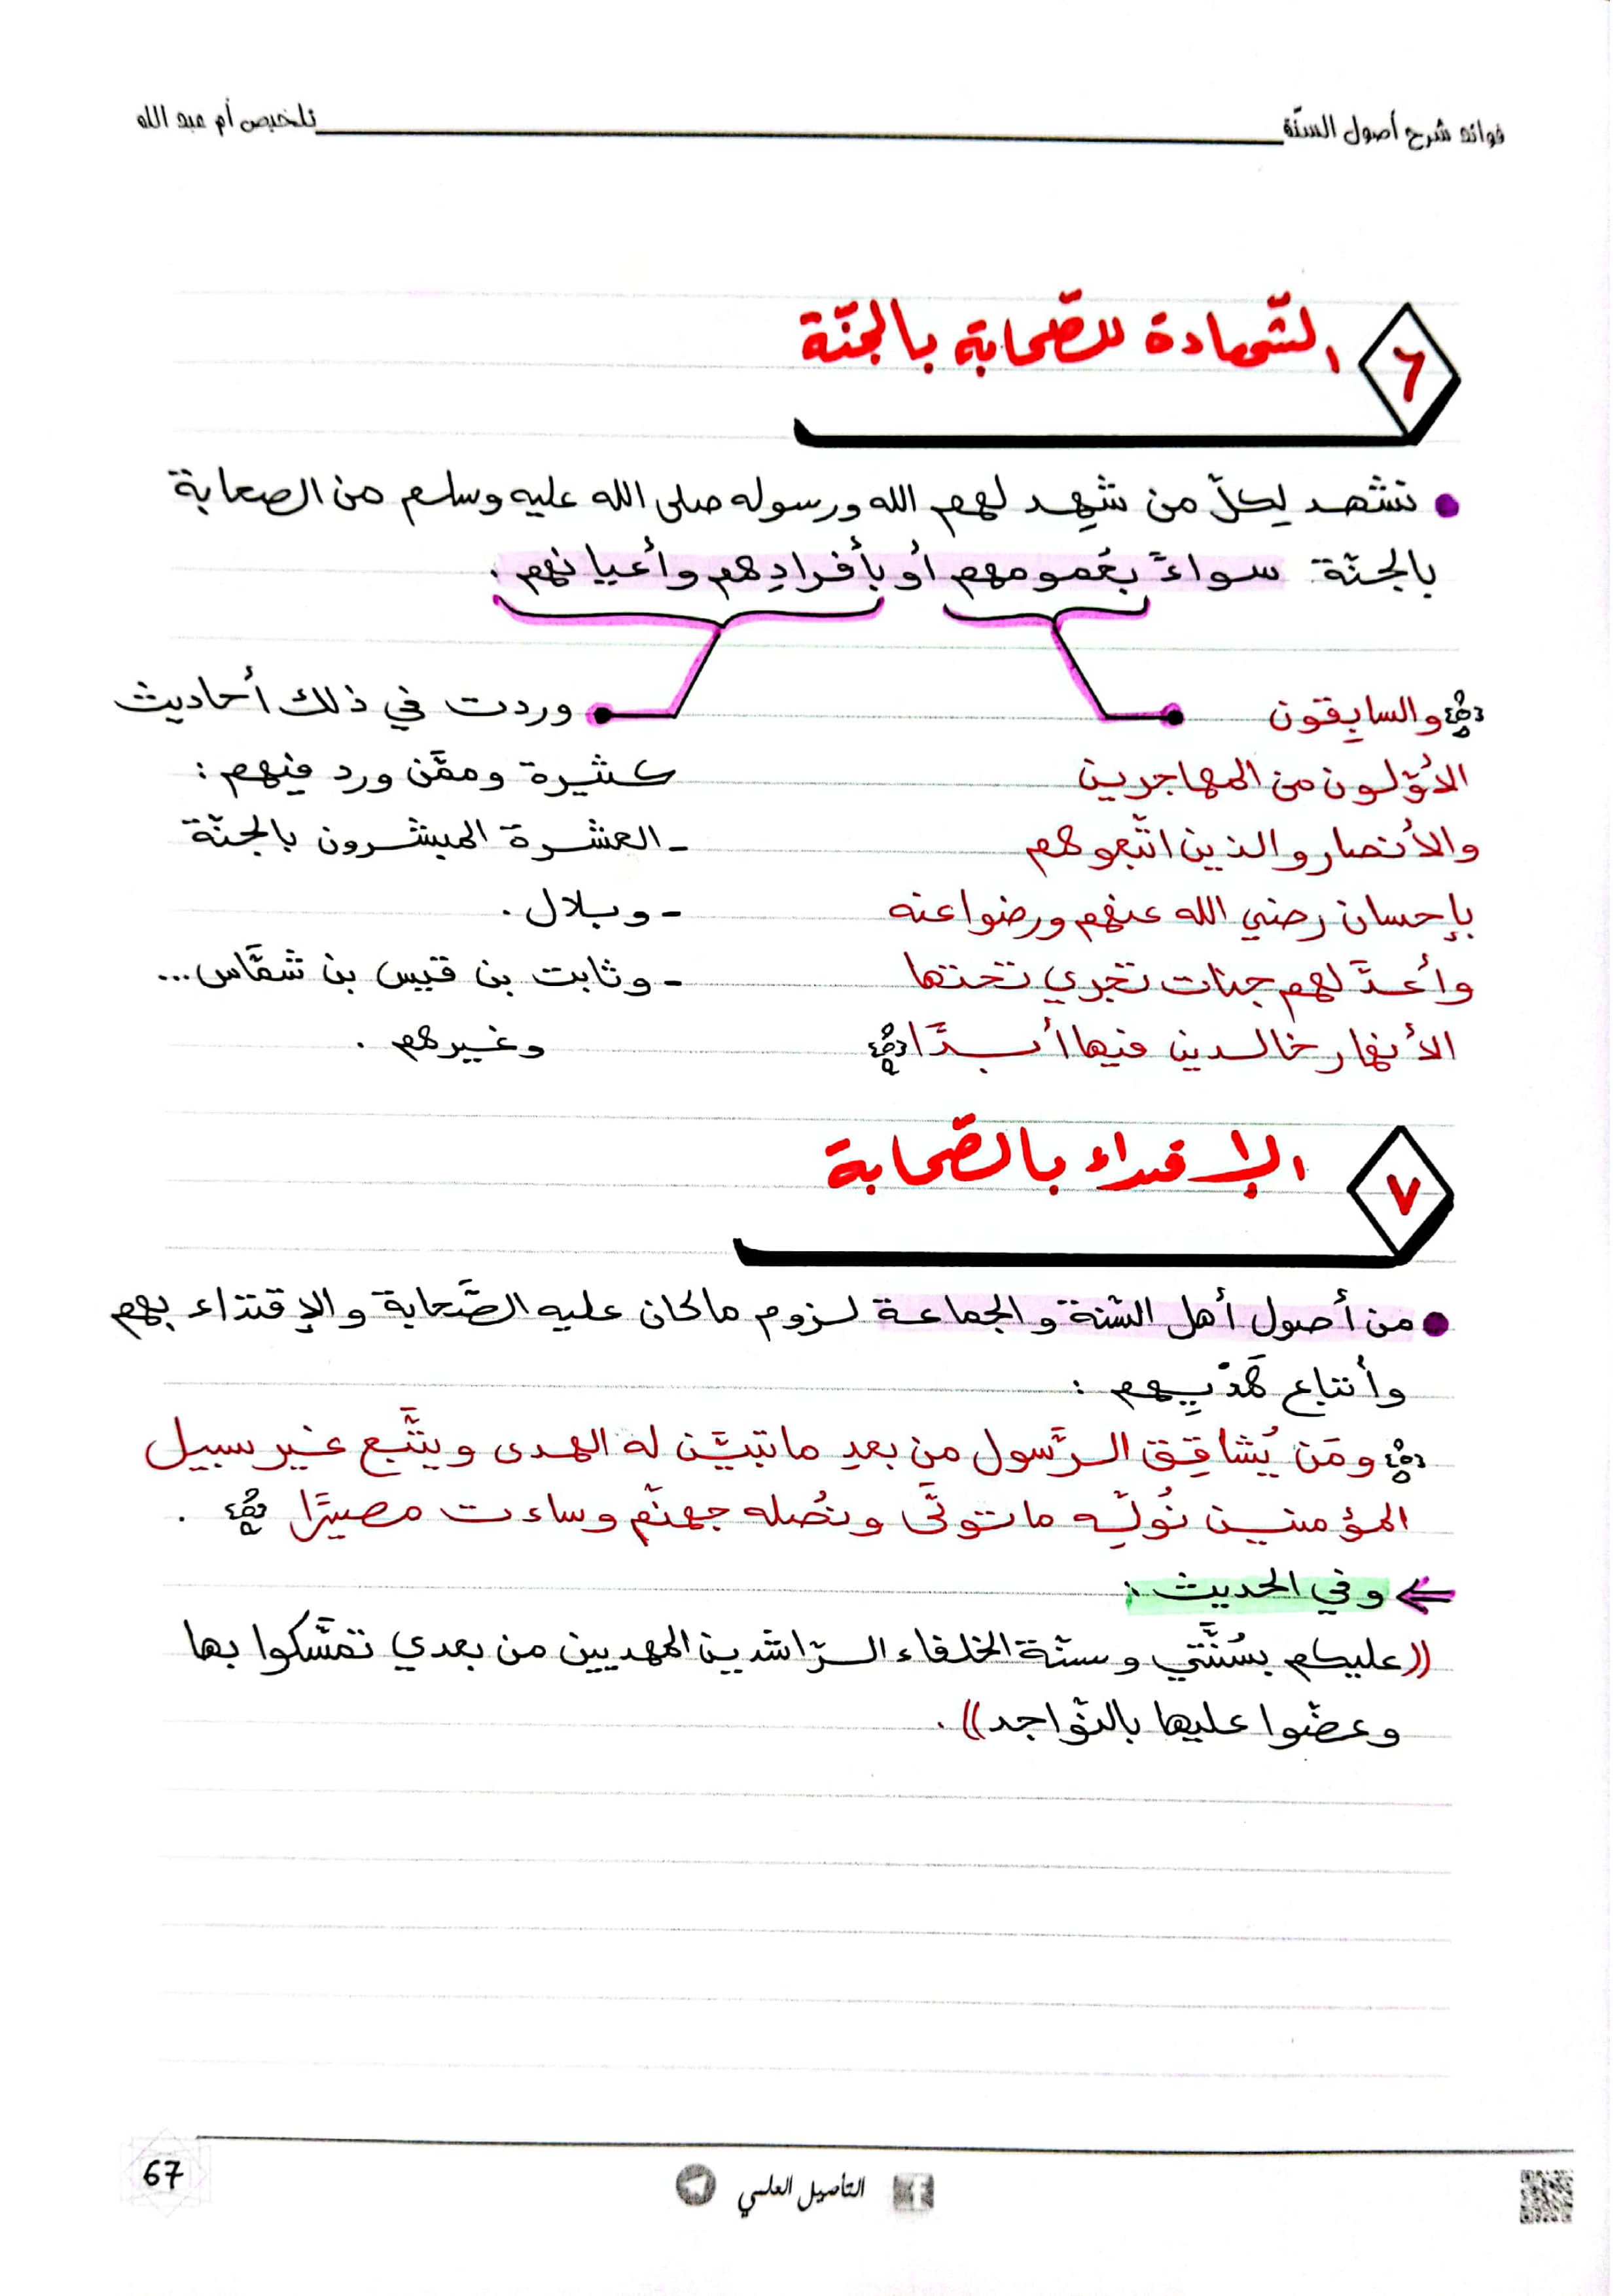 فوائد شرح أصول السنّة
تلخيص أم عبد الله
٦
الشّهادة للصّحابة بالجنّة
نشهد لِكلّ من شهِد لهم الله ورسوله صلى الله عليه وسلم من الصحابة
بالجنّة سواءً بعُمومهم أو بأفرادِهم وأعيانهم .
﴿والسابِقون
الأوّلون من المهاجرين
والأنصار والذين اتّبعوهم
بإحسان رضي الله عنهم ورضوا عنه
وأعدَّ لهم جنات تجري تحتها
الأنهار خالدين فيها أبدًا﴾
وردت في ذلك أحاديث
كثيرة وممَّن ورد فيهم :
- العشرة المبشرون بالجنّة
- وبلال .
- وثابت بن قيس بن شمَّاس...
وغيرهم .
٧
الإقتداء بالصّحابة
من أصول أهل السّنة والجماعة لزوم ماكان عليه الصَّحابة والإقتداء بهم
وأتباع هَدْيِهم :
﴿ومَن يُشاقِقِ الرَّسول من بعدِ ما تبيَّن له الهدى ويتَّبع غير سبيل
المؤمنين نُولِّه ما تولَّى ونُصله جهنّم وساءت مصيرًا﴾ .
وفي الحديث :
((عليكم بسُنَّتي وسنّة الخلفاء الرّاشدين المهديين من بعدي تمسَّكوا بها
وعضّوا عليها بالنّواجد)) .
التأصيل العلمي
67